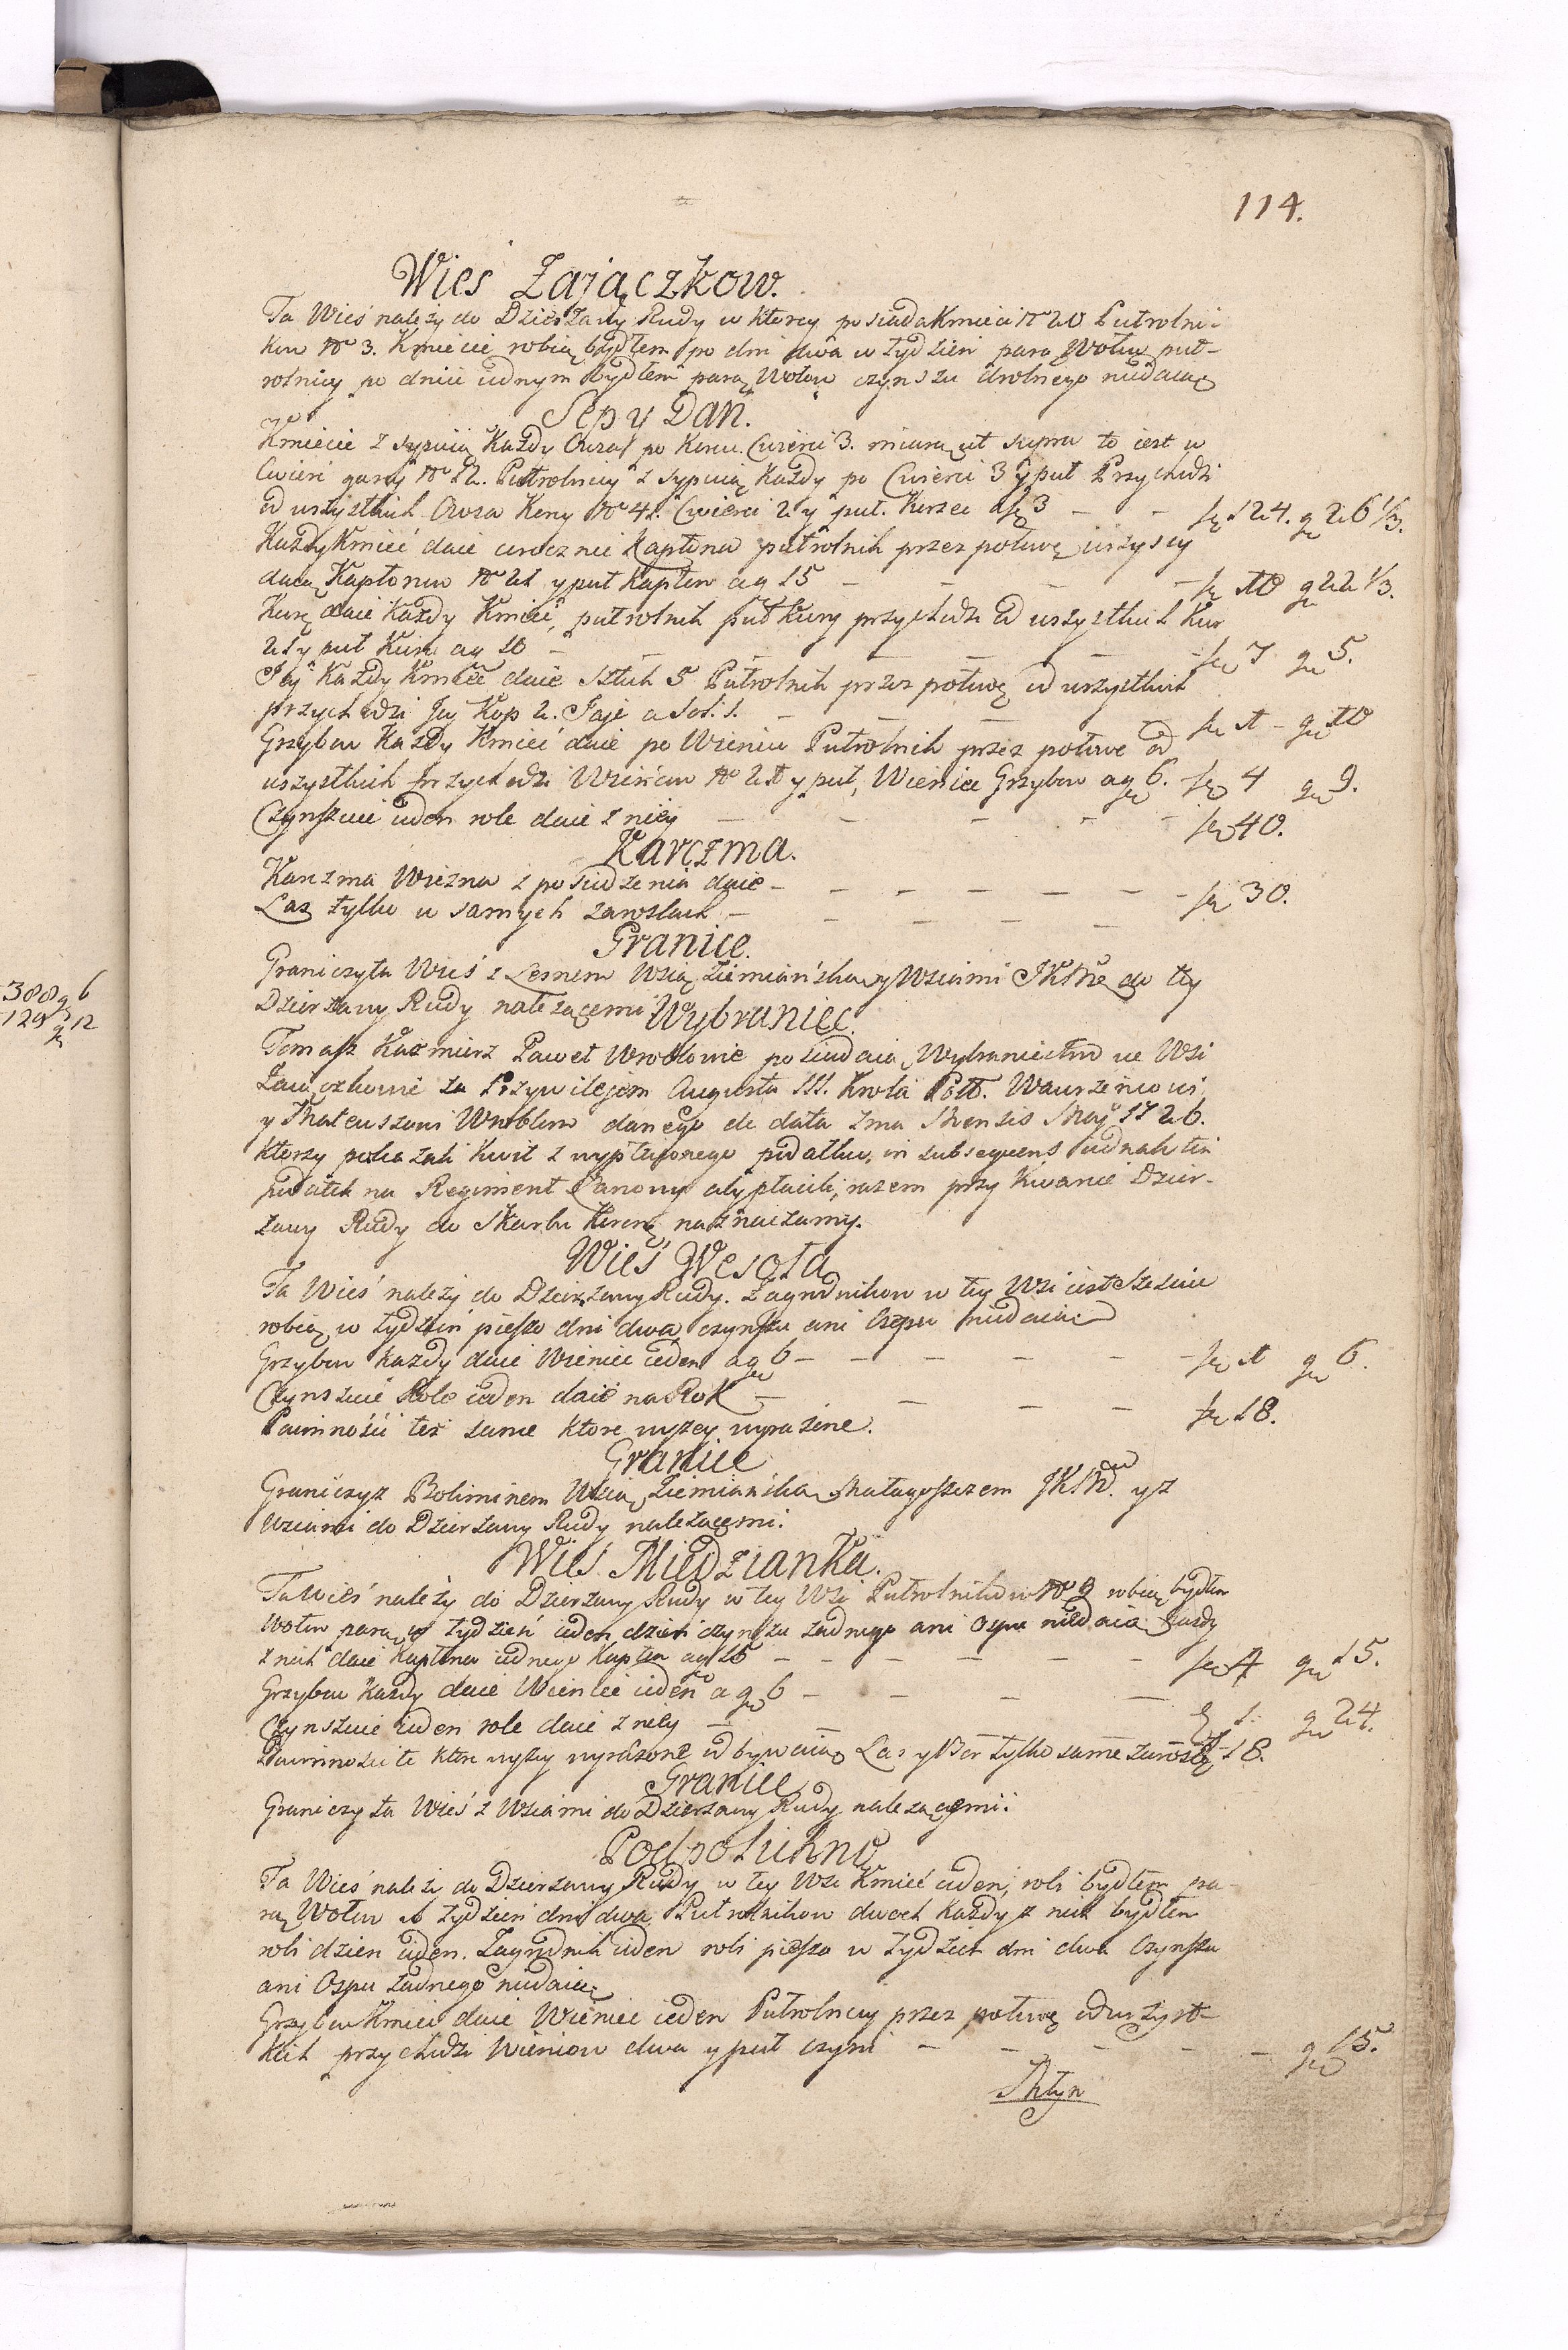 114.
Wies Zajączkow.
Ta Wieś należy do Dzierżawy Rudy w ktorey posiada Kmieci No 20 Pułrolni-
kow No 3. Kmiecie robią bydłem po dni dwa w tydzień parą Wołow puł-
rolnicy po dniu iednym bydłem parą Wołow czynszu drolnego niedaią
Sep y Dań.
Kmiecie zsypuią Każdy Owsa po Korcu. Cwierci 3. miarą ut supra to iest w
Cwierć garcy No 12. Pułrolnicy zsypuią Każdy po Cwierci 3 y puł Przychodzi
od wszystkich Owsa Korcy No 41. Cwierci 2 y puł. Korzec a fl 3 — — fl 124. gr 26 1/3.
Każdy Kmieć daie corocznie Kapłona pułrolnik przez połowę wszyscy
daią Kapłonow No 21 y puł Kapłon a g 15 — — — — fl 10 g 22 1/3.
Kurę daie Każdy Kmieć, pułrolnik puł Kury przychodzi od wszystkich Kur
21 y puł Kura a g 10 — — — — — fl 7 gr 5.
Jaj Każdy Kmieć daie sztuk 5 Pułrolnik przez połowę od wszystkich
przychodzi Jaj Kop 2. Jaje a sol. 1. — — — fl 1 - gr 10
Grzybow Każdy Kmieć daie po Wieńcu Pułrolnik przez połowę od
wszystkich przychodzi Wieńcow No 21 y puł, Wieniec Grzybow a gr 6. fl 4 gr 9.
Czynszuie ieden role daie z niey — — — — — fl 40.
Karczma.
Karczma Wiezna z posiedzenia daie — — — — — — fl 30.
Las tylko w samych zaroslach — — — — —
Granice.
Graniczy ta Wieś z Lesnem Wsią Ziemiańską y Wsiami JKMć do tey
Dzierżawy Rudy należącemi Wybraniec.
Tomasz Kazmierz Paweł Wroblowie posiadaią Wybraniectwo we Wsi
Zaiączkowie za Przywilejem Augusta III. Krola Poll. Wawrzeńcowi
y Mateuszowi Wroblow danego de data 2ma Mensis Maj 1726.
ktorzy pokazali Kwit z wypłaconego podatku, in subsequens iednak ten
podatek na Regiment Łanowy aby płacili, razem przy Kwanie Dzier-
żawy Rudy do Skarbu Koron. naznaczamy.
Wieś Wesoła
Ta Wieś należy do Dzierżawy Rudy. Zagrodnikow w tey Wsi iest Sześciu
robią w tydzień pieszo dni dwa czynszu ani Osepu niedaią
Grzybow każdy daie Wieniec ieden a gr 6 — — — — — fl 1 gr 6.
Czynszuie Role ieden daie na Rok — — — — fl 18.
Powinności teź same ktore wyzey wyrażone.
Granice
Graniczy z Boliminem Wsią Ziemiańską Małogoszczem JKMći y z
Wsiami do Dzierżawy Rudy należącemi.
Wies Miedzianka.
Ta Wieś należy do Dzierżawy Rudy w tey Wsi Pułrolnikow No 9 robią bydłem
Wołow parą w tydzień ieden dzień czynszu żadnego ani Ospu niedaią Każdy
z nich daie Kapłona iednego Kapłon a g 15 — — — — — — fl 4 gr 15.
Grzybow Każdy daie Wieniec ieden a gr 6 — — — — fl 1. gr 24.
Czynszuie ieden role daie z niey — — — fl 18.
Powinności te ktore wyzey wyrażone odbywaią Las y Bor tylko same zarosle
Granice
Graniczy ta Wieś z Wsiami do Dzierżawy Rudy należącemi.
Podpolichno
Ta Wieś należi do Dzierżawy Rudy w tey Wsi Kmieć ieden, robi bydłem pa-
rą Wołow w tydzień dni dwa, Pułrolnikow dwoch Każdy z nich bydłem
robi dzien ieden. Zagrodnik ieden robi pieszo w tydzień dni dwa Czynszu
ani Ospu żadnego niedaią
Grzybow Kmieć daie Wieniec ieden Pułrolnicy przez połowę od wszyst-
kich przychodzi Wieńcow dwa y puł czyni — — — — — gr 15.
Młyn
388 g 6
129 g 12